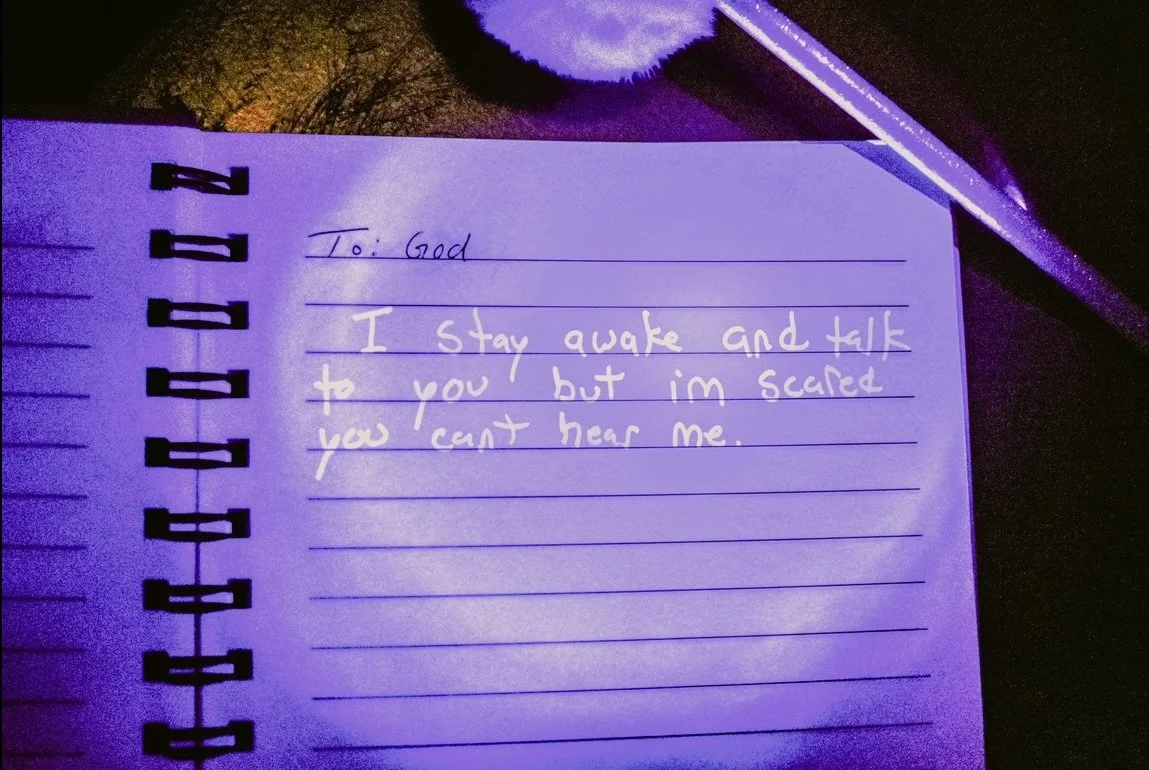 To: God
I stay awake and talk
to you but im scared
you can't hear me.